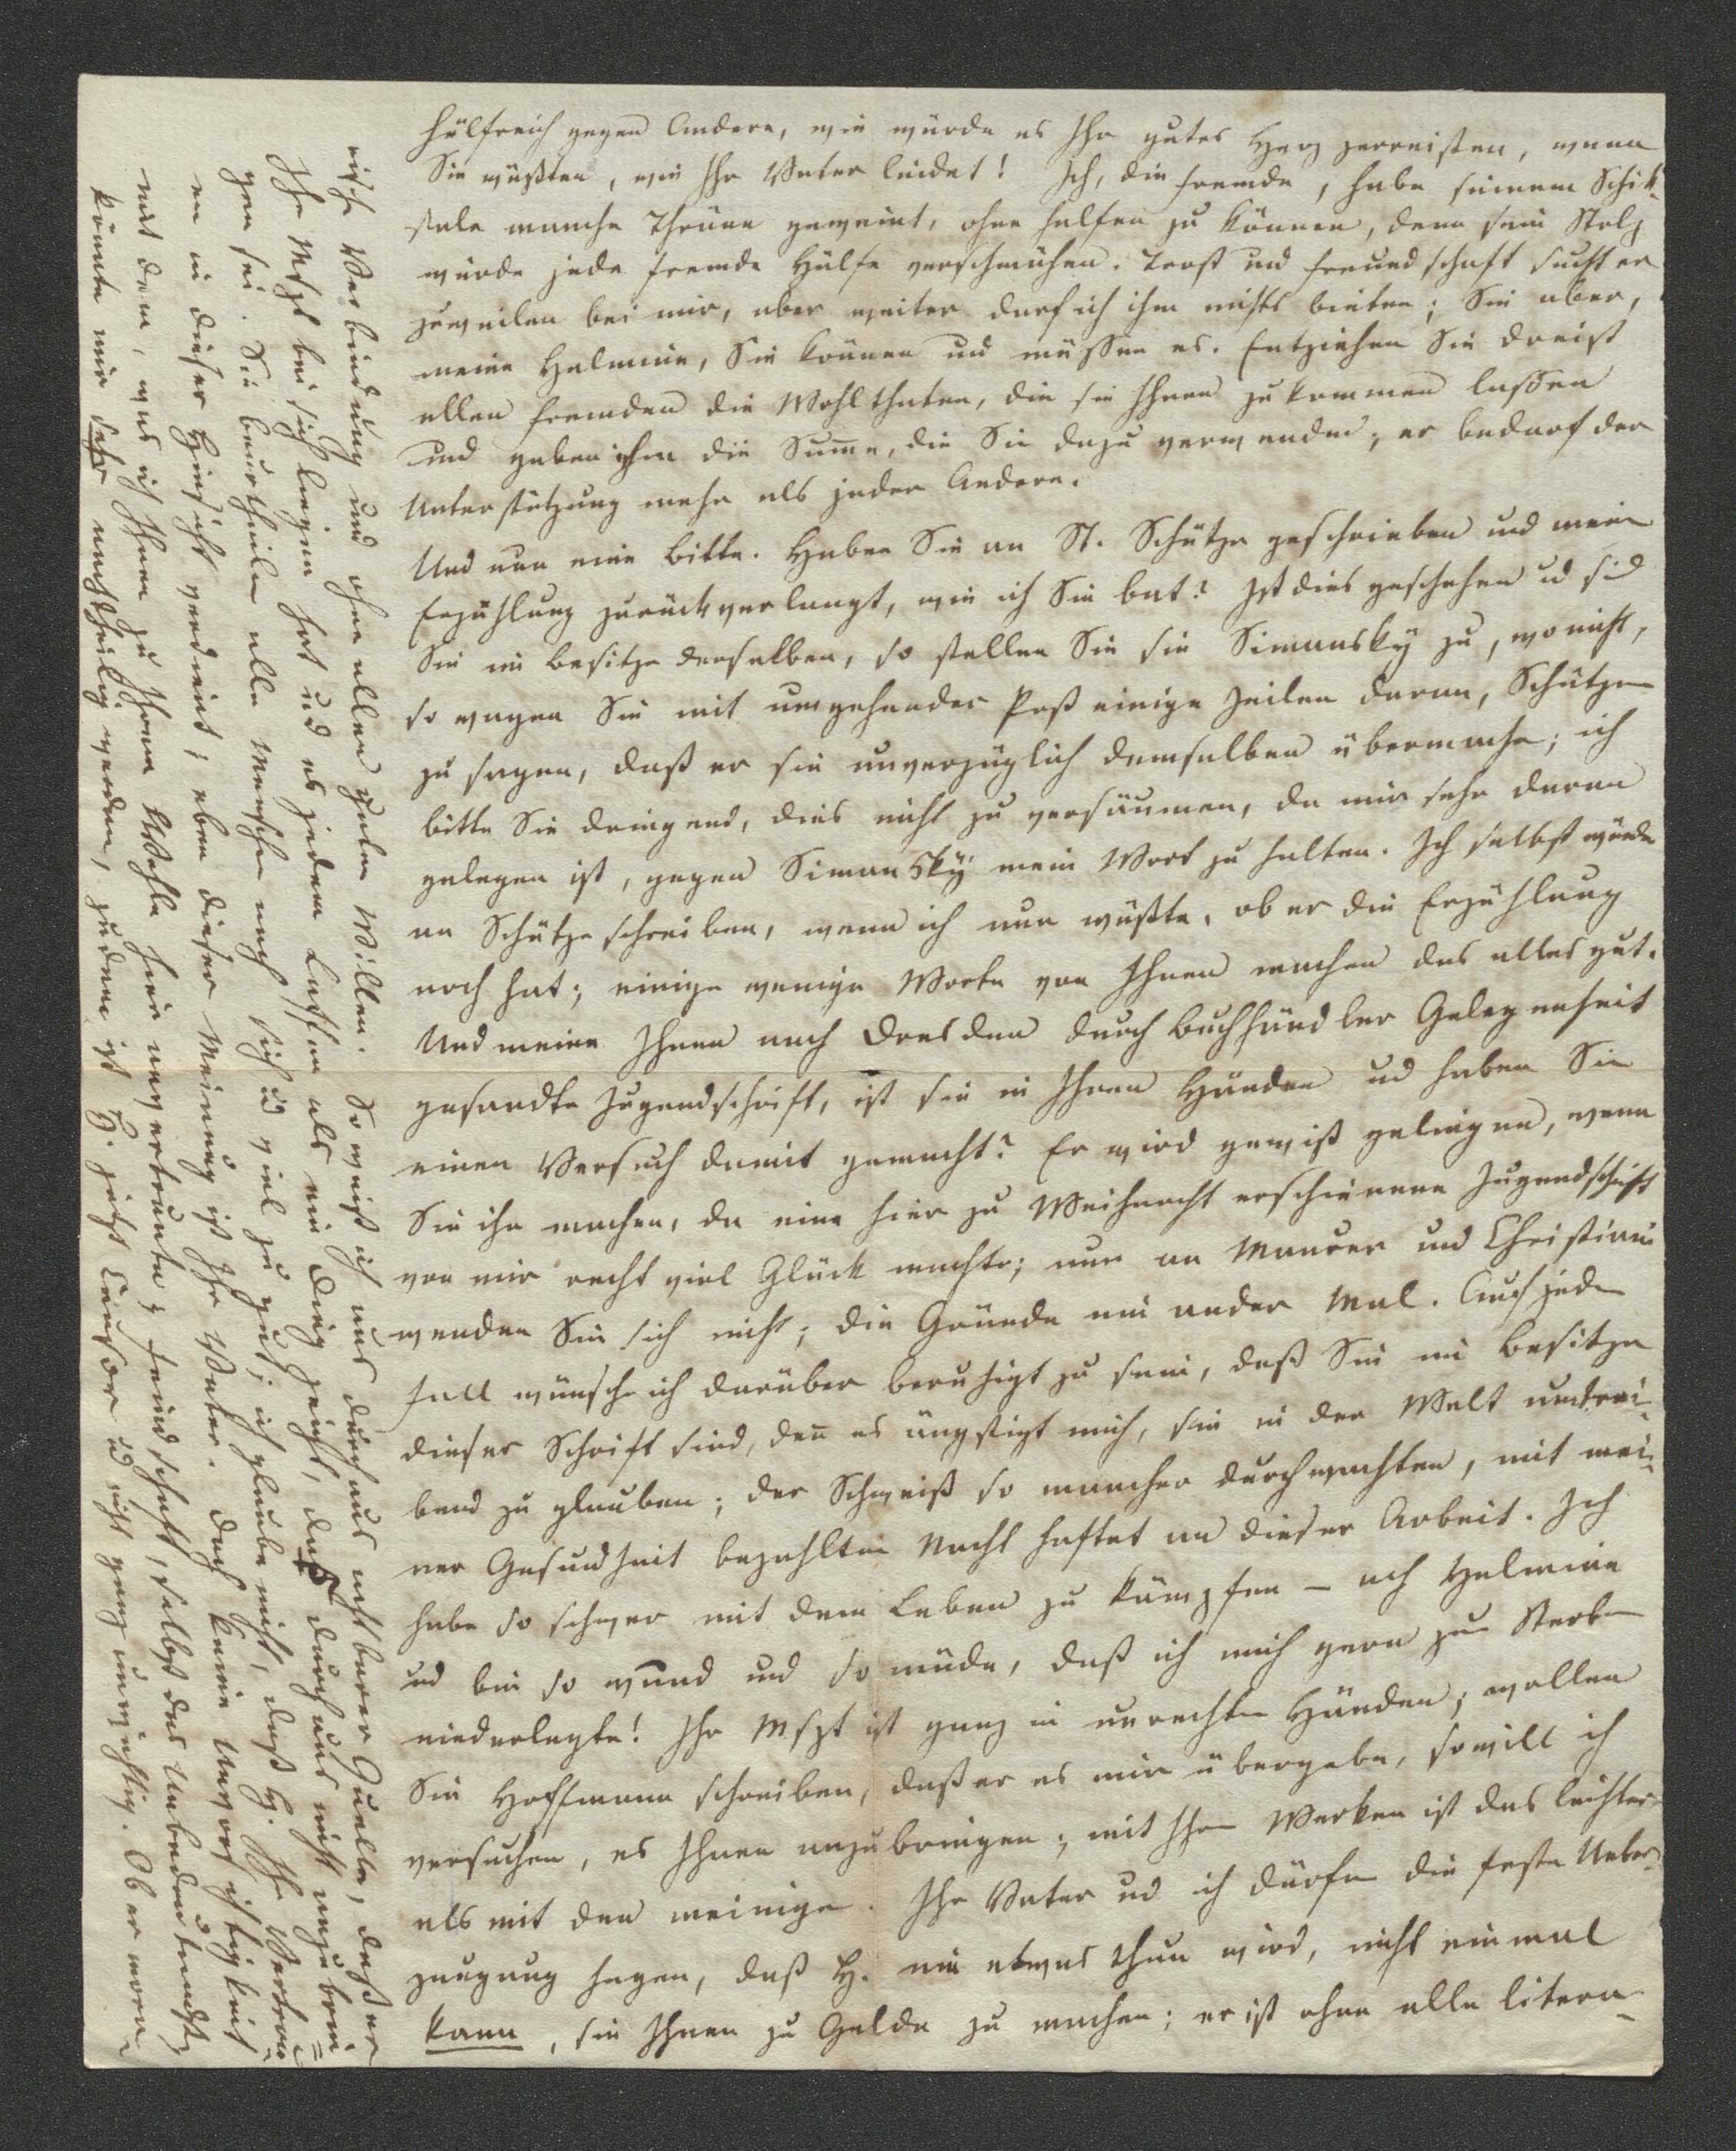 hülfreich gegen Andere, wie würde es Ihr gutes Herz zerreißen, wenn
Sie wüßten, wie Ihr Vater leidet! Ich, die Fremde, habe seinem Schik¬
sale manche Thräne geweint, ohne helfen zu können, denn sein Stolz
würde jede fremde Hülfe verschmähen. Trost und Freundschaft sucht er
zuweilen bei mir, aber weiter darf ich ihm nichts bieten; Sie aber,
meine Helmine, Sie können und müssen es. Entziehen Sie dreist
allen Fremden die Wohlthaten, die sie Ihnen zukommen lassen
und geben ihm die Sum̄e, die Sie dazu verwenden; er bedarf der
Unterstützung mehr als jeder Andere.
Und nun eine Bitte. Haben Sie an St. Schütze geschrieben und meine
Erzählung zurückverlangt, wie ich Sie bat? Ist dies geschehen ud sind
Sie im Besitze derselben, so stellen Sie sie Simansky zu, wo nicht,
so wagen Sie mit umgehender Post einige Zeilen daran, Schützen
zu sagen, daß er sie unverzüglich demselben übermache; ich
bitte Sie dringend, dies nicht zu versäumen, da mir sehr daran
gelegen ist, gegen Simansky mein Wort zu halten. Ich selbst würde
an Schütze schreiben, wenn ich nur wüßte, ob er die Erzählung
noch hat; einige wenige Worte von Ihnen machen das alles gut.
Und meine Ihnen nach Dresden durch Buchhändler Gelegenheit
gesandte Jugendschrift, ist sie in Ihren Händen ud haben Sie
einen Versuch damit gemacht? Er wird gewiß gelingen, wenn
Sie ihn machen, da eine hier zu Weihnacht erschienene Jugendschrift
von mir recht viel Glück machte; nur an Maurer und Christiani
wenden Sie sich nicht; die Gründe ein ander Mal. Auf jeden
Fall wünsche ich darüber beruhigt zu sein, daß Sie im Besitze
dieser Schrift sind, den̄ es ängstigt mich, sie in der Welt umtrei¬
bend zu glauben; der Schweiß so mancher durchwachten, mit mei¬
ner Gesundheit bezahlten Nacht haftet an dieser Arbeit. Ich
habe so schwer mit dem Leben zu kämpfen – ach Helmine
ud bin so wund und so müde, daß ich mich gern zum Sterben
niederlegte! Ihr Mspt ist ganz in unrechten Händen; wollen
Sie Hoffmann schreiben, daß er es mir übergebe, so will ich
versuchen, es Ihnen anzubringen; mit Ihren Werken ist das leichter
als mit den meinigen. Ihr Vater ud ich dürfen die feste Ueber¬
zeugung hegen, daß H. nie etwas thun wird, nicht einmal
kann, sie Ihnen zu Gelde zu machen; er ist ohne alle litera¬
rische Verbindung und ohne allen guten Willen. So weiß ich aus durchaus achtbarer Quelle, daß er
Ihr Mspt bei sich liegen hat und es jedem Lassen als ein Ding zeigt, daß durchaus nicht anzubrin=
gen sei. Sie beurtheilen alle Menschen nach sich ud viel zu gut; ich glaube nicht, daß H. Ihr Vertrau¬
en in dieser Hinsicht verdient; eben dieser Meinung ist Ihr Vater. Doch keine Unvorsichtigkeit
mit dem, was ich Ihnen zu Ihrem Wohle hier anvertraute; Feindschaft, selbst des Unbedeutendsten
könnte mir sehr nachtheilig werden, zudem ist H. jetzt Censor ud nicht ganz unwichtig. Ob er wenn